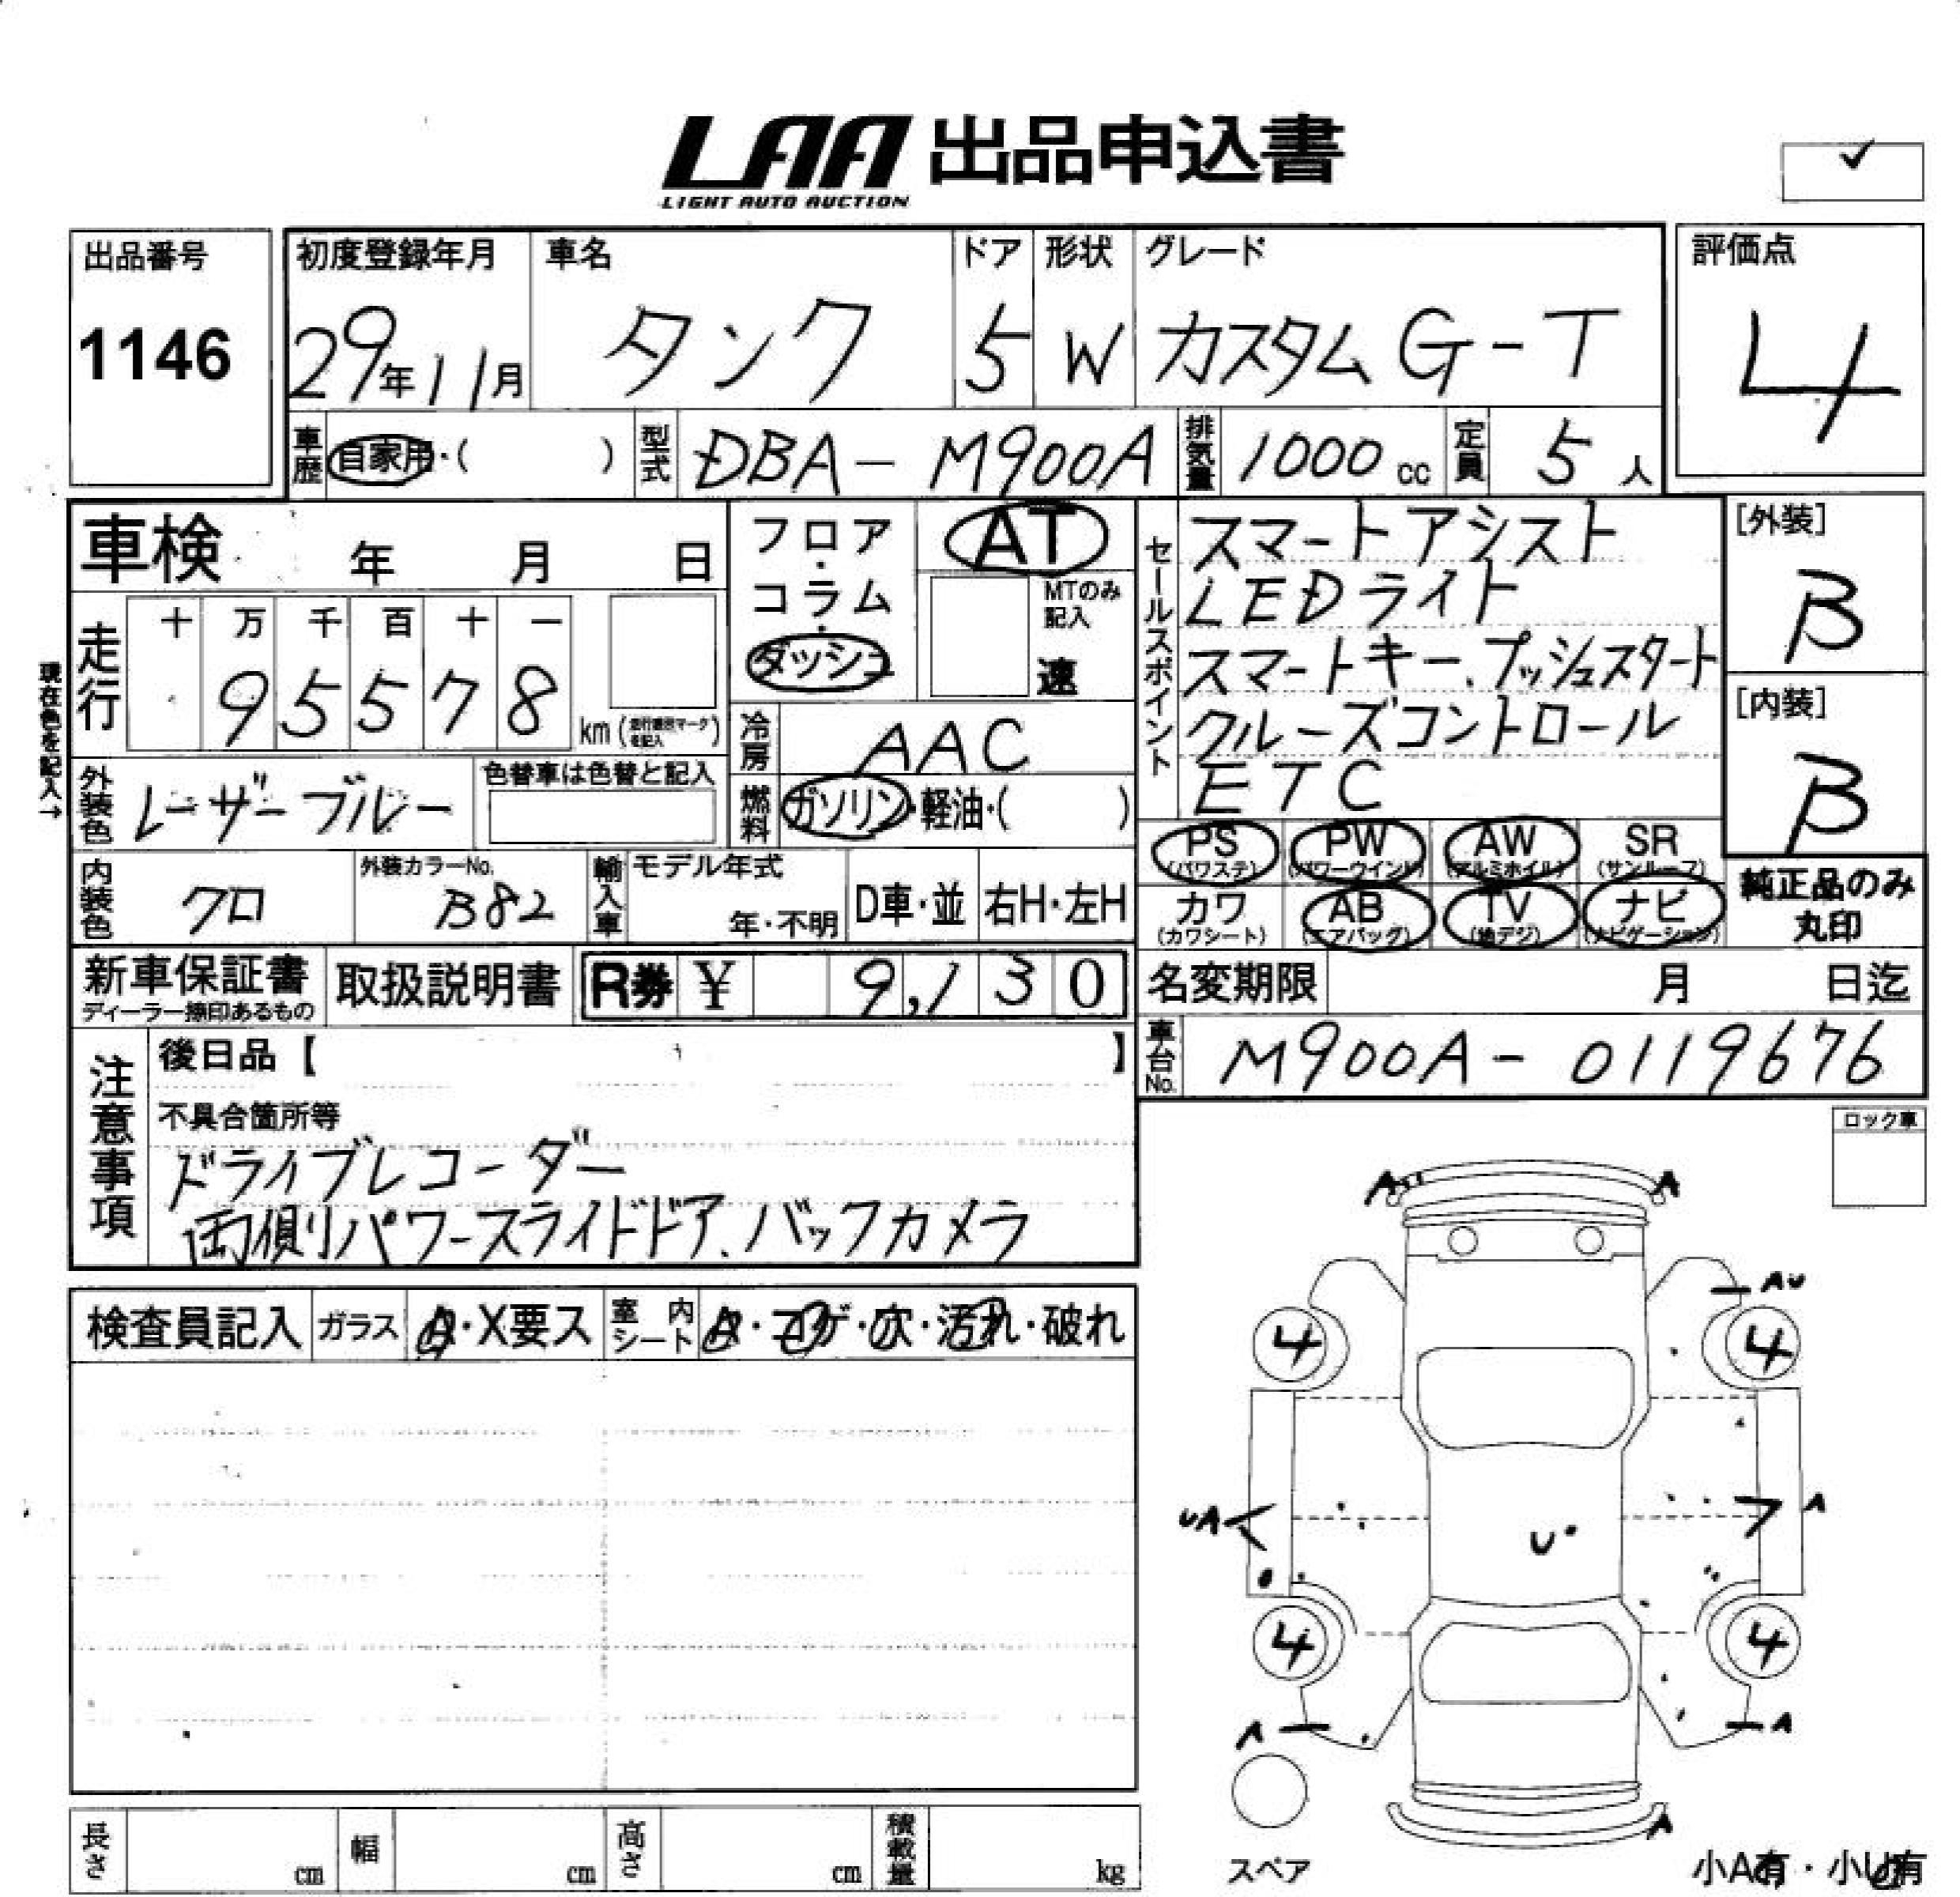 LAA 出品申込書
LIGHT AUTO AUCTION
出品番号
1146
初度登録年月
29年11月
車名
タンク
ドア
5
形状
W
グレード
カスタム G-T
評価点
4
車歴 自家用・( )
型式 DBA-M900A
排気量 1000 cc
定員 5 人
車検 年 月 日
走行 十 万 千 百 十 一
9 5 5 7 8
km
現在色を記入→
フロア・コラム・ダッシュ
AT
MTのみ記入
速
冷房 AAC
燃料 ガソリン・軽油・( )
外装色 レーザーブルー
色替車は色替と記入
内装色 クロ
外装カラーNo.
B82
輸入車 モデル年式
年・不明
D車・並
右H・左H
セールスポイント
スマートアシスト
LEDライト
スマートキー、プッシュスタート
クルーズコントロール
ETC
[外装]
B
[内装]
B
PS (パワステ)
PW (パワーウインド)
AW (アルミホイル)
SR (サンルーフ)
カワ (カワシート)
AB (エアバッグ)
TV (地デジ)
ナビ (ナビゲーション)
純正品のみ
丸印
新車保証書
ディーラー捺印あるもの
取扱説明書
R券 ¥ 9,130
名変期限 月 日迄
車台No. M900A-0119676
注意事項
後日品【 】
不具合箇所等
ドライブレコーダー
両側パワースライドドア、バックカメラ
ロック車
検査員記入
ガラス A・X要ス
室内シート A・コゲ・穴・汚れ・破れ
A
A
AU
4
4
UA
A
U
4
4
A
A
A
スペア
小A有・小U有
長さ cm
幅 cm
高さ cm
積載量 kg